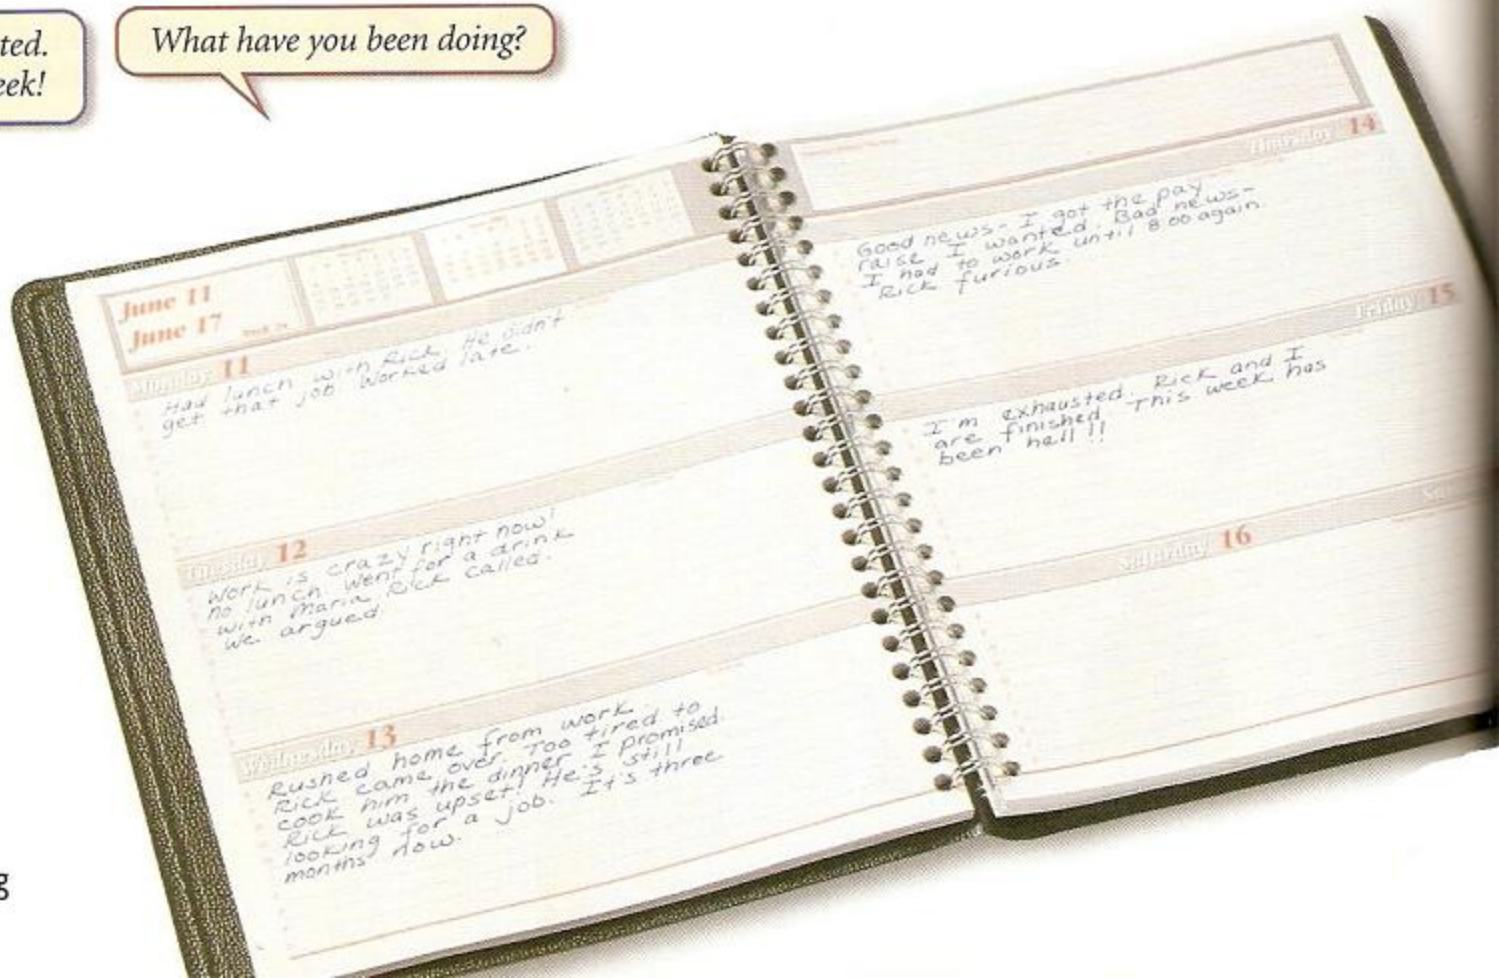 ted.
eek!
What have you been doing?
June 11
June 17
Monday 11
Had lunch with Rick. He didn't
get that job. Worked late.
Tuesday 12
Work is crazy right now!
no lunch. Went for a drink
with Maria. Rick called.
We argued.
Wednesday 13
Rushed home from work
Rick came over. Too tired to
cook him the dinner I promised.
Rick was upset! He's still
looking for a job. It's three
months now.
Thursday 14
Good news- I got the pay
raise I wanted. Bad news-
I had to work until 8 00 again.
Rick furious.
Friday 15
I'm exhausted. Rick and I
are finished. This week has
been hell!!
Saturday 16
g